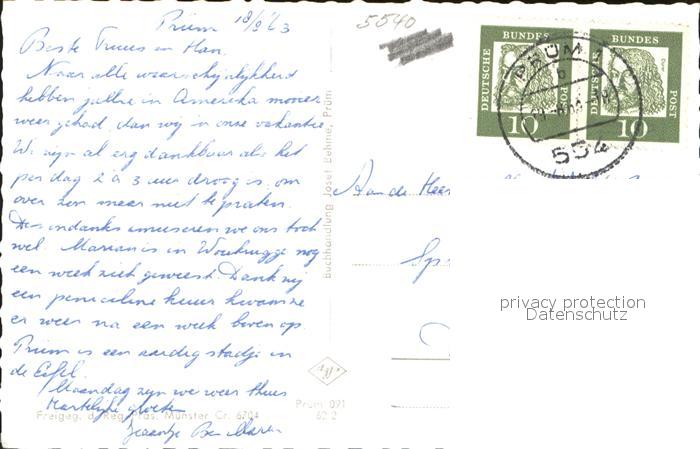 Prüm 18/8 '63
5540
Beste Truus en Han.
Naar alle waarschijnlijkheid
hebben jullie in Amerika mooier
weer gehad dan wij in onze vakantie
We zijn al erg dankbaar als het
per dag 2 à 3 uur droog is, om
over zon maar niet te praten.
Desondanks amuseren we ons toch
wel. Marian is in Woubrugge nog
een week ziek geweest. Dank zij
een penicilline kuur kwam ze
er weer na een week boven op.
Prüm is een aardig stadje in
de Eifel.
Maandag zijn we weer thuis
Hartelijke groeten
Aan de Heer
Buchhandlung Josef Behme, Prüm
Freigeg. d. Reg. Präs. Münster Cr. 6704
Prüm 091
62 2
DEUTSCHE BUNDES POST
10
DEUTSCHE BUNDES POST
10
PRÜM
554
privacy protection
Datenschutz